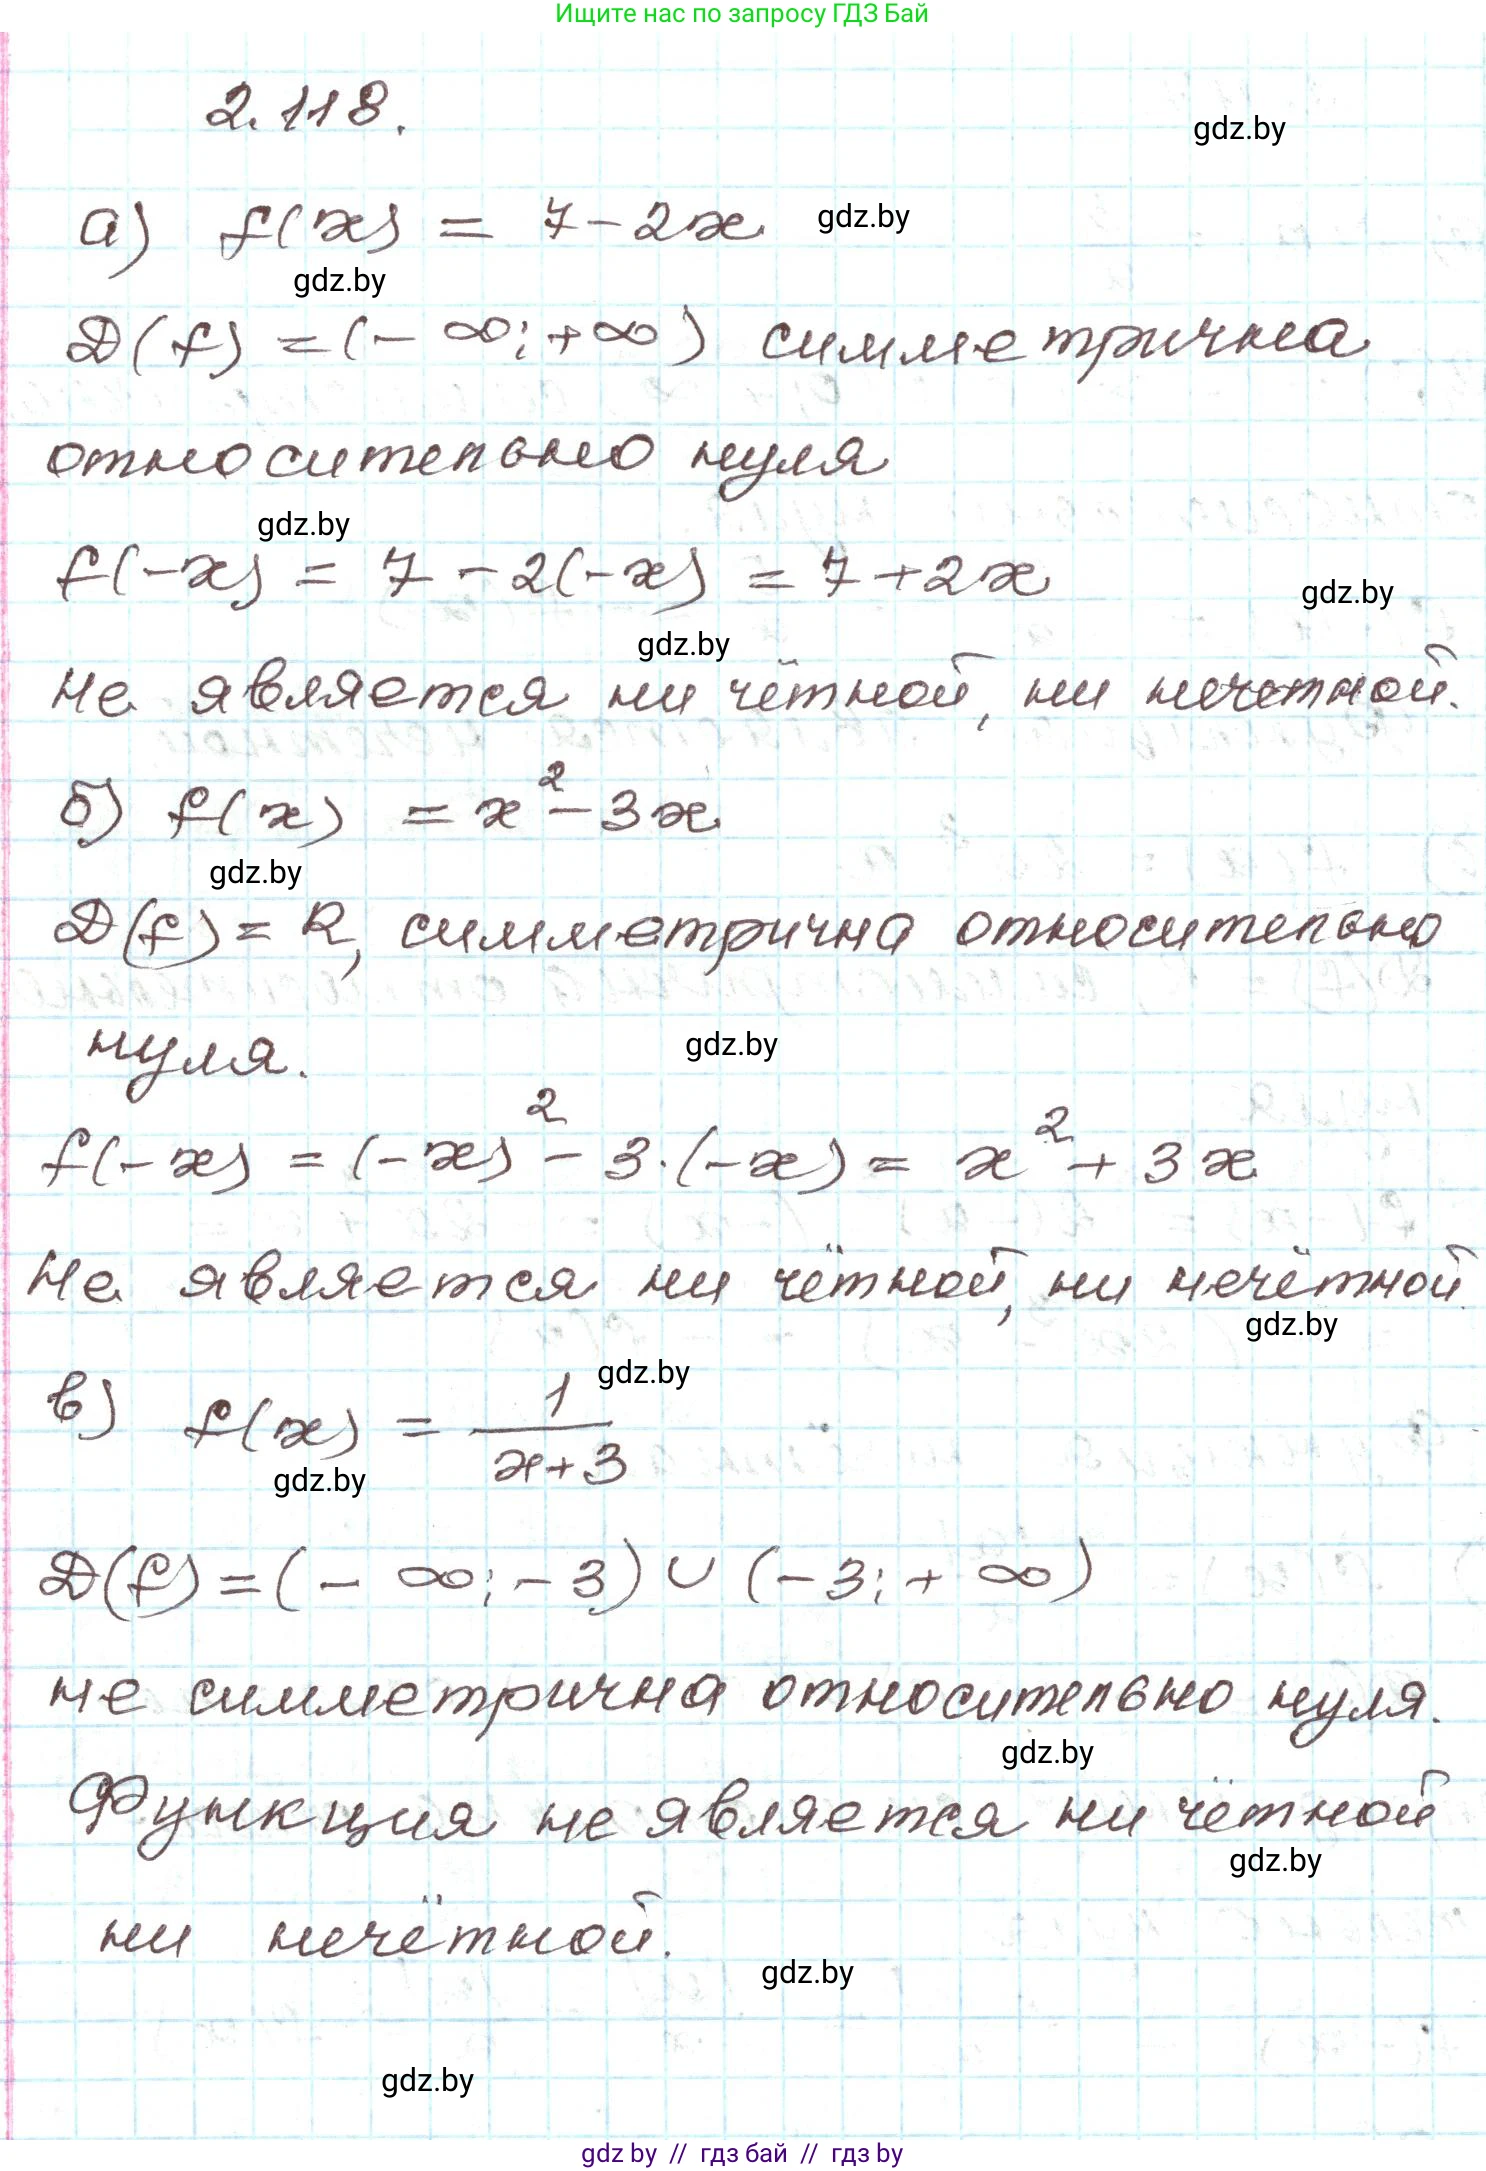 Ищите нас по запросу ГДЗ Бай
2.118.
gdz.by
а) f(x) = 7 - 2x
gdz.by
gdz.by
D(f) = (- ∞; +∞) симметрична
относительно нуля
gdz.by
f(-x) = 7 - 2(-x) = 7 + 2x
gdz.by
gdz.by
не является ни чётной, ни нечетной.
б) f(x) = x² - 3x
gdz.by
D(f) = R, симметрична относительно
нуля.
gdz.by
f(-x) = (-x)² - 3·(-x) = x² + 3x
Не является ни чётной, ни нечётной.
gdz.by
gdz.by
в) f(x) = 1/(x+3)
gdz.by
D(f) = (- ∞; -3) ∪ (-3; + ∞)
не симметрична относительно нуля.
gdz.by
Функция не является ни чётной
gdz.by
ни нечётной.
gdz.by
gdz.by
gdz by // гдз бай // гдз by